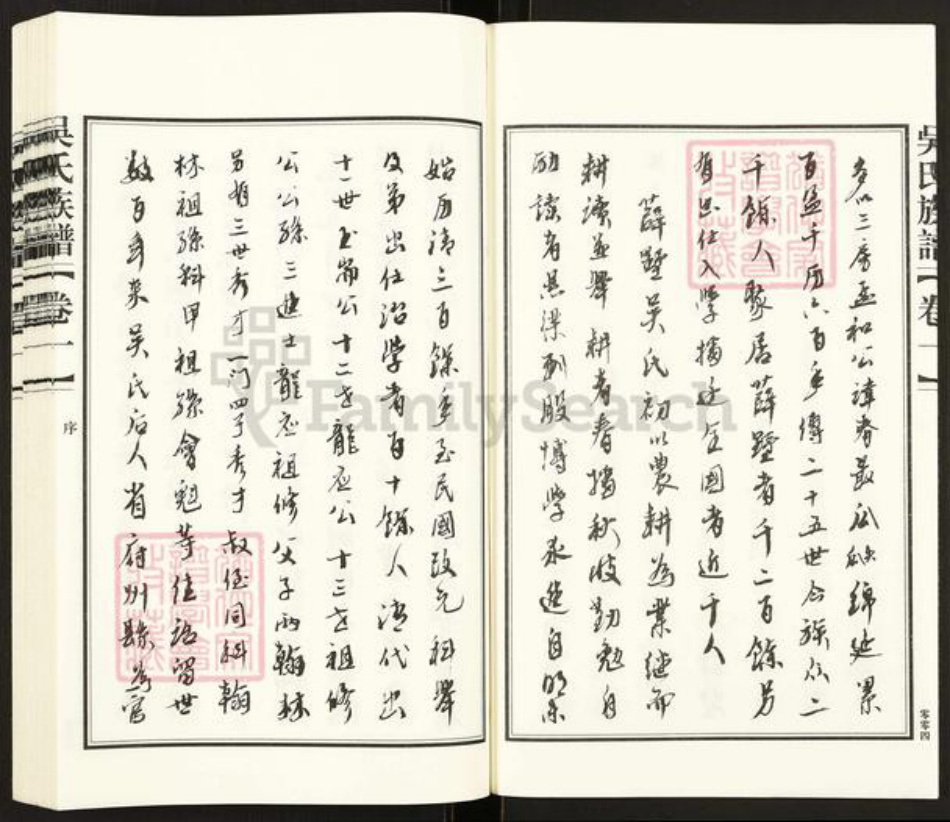 多以三房孟和公諱春最瓜瓞綿延累
百盈千歷六百年傳二十五世合族近二
千餘人聚居薛墅者千二百餘另
有出仕入學播遷全國者近千人
薛墅吳氏初以農耕為業繼而
耕讀並舉耕者春播秋收勤勉自
勵讀者懸梁刺股博學求進自明末
零零四
吳氏族譜【卷一】
始歷清三百餘年至民國改元科舉
及第出仕治學者百十餘人清代出
十一世玉崙公十二世龍應公十三世祖修
公公孫三進士龍應祖修父子兩翰林
另有三世秀才一門四子秀才叔侄同科翰
林祖孫科甲祖孫會魁等佳話留世
數百年來吳氏后人省府州縣為官
吳氏族譜【卷一】
序
FamilySearch